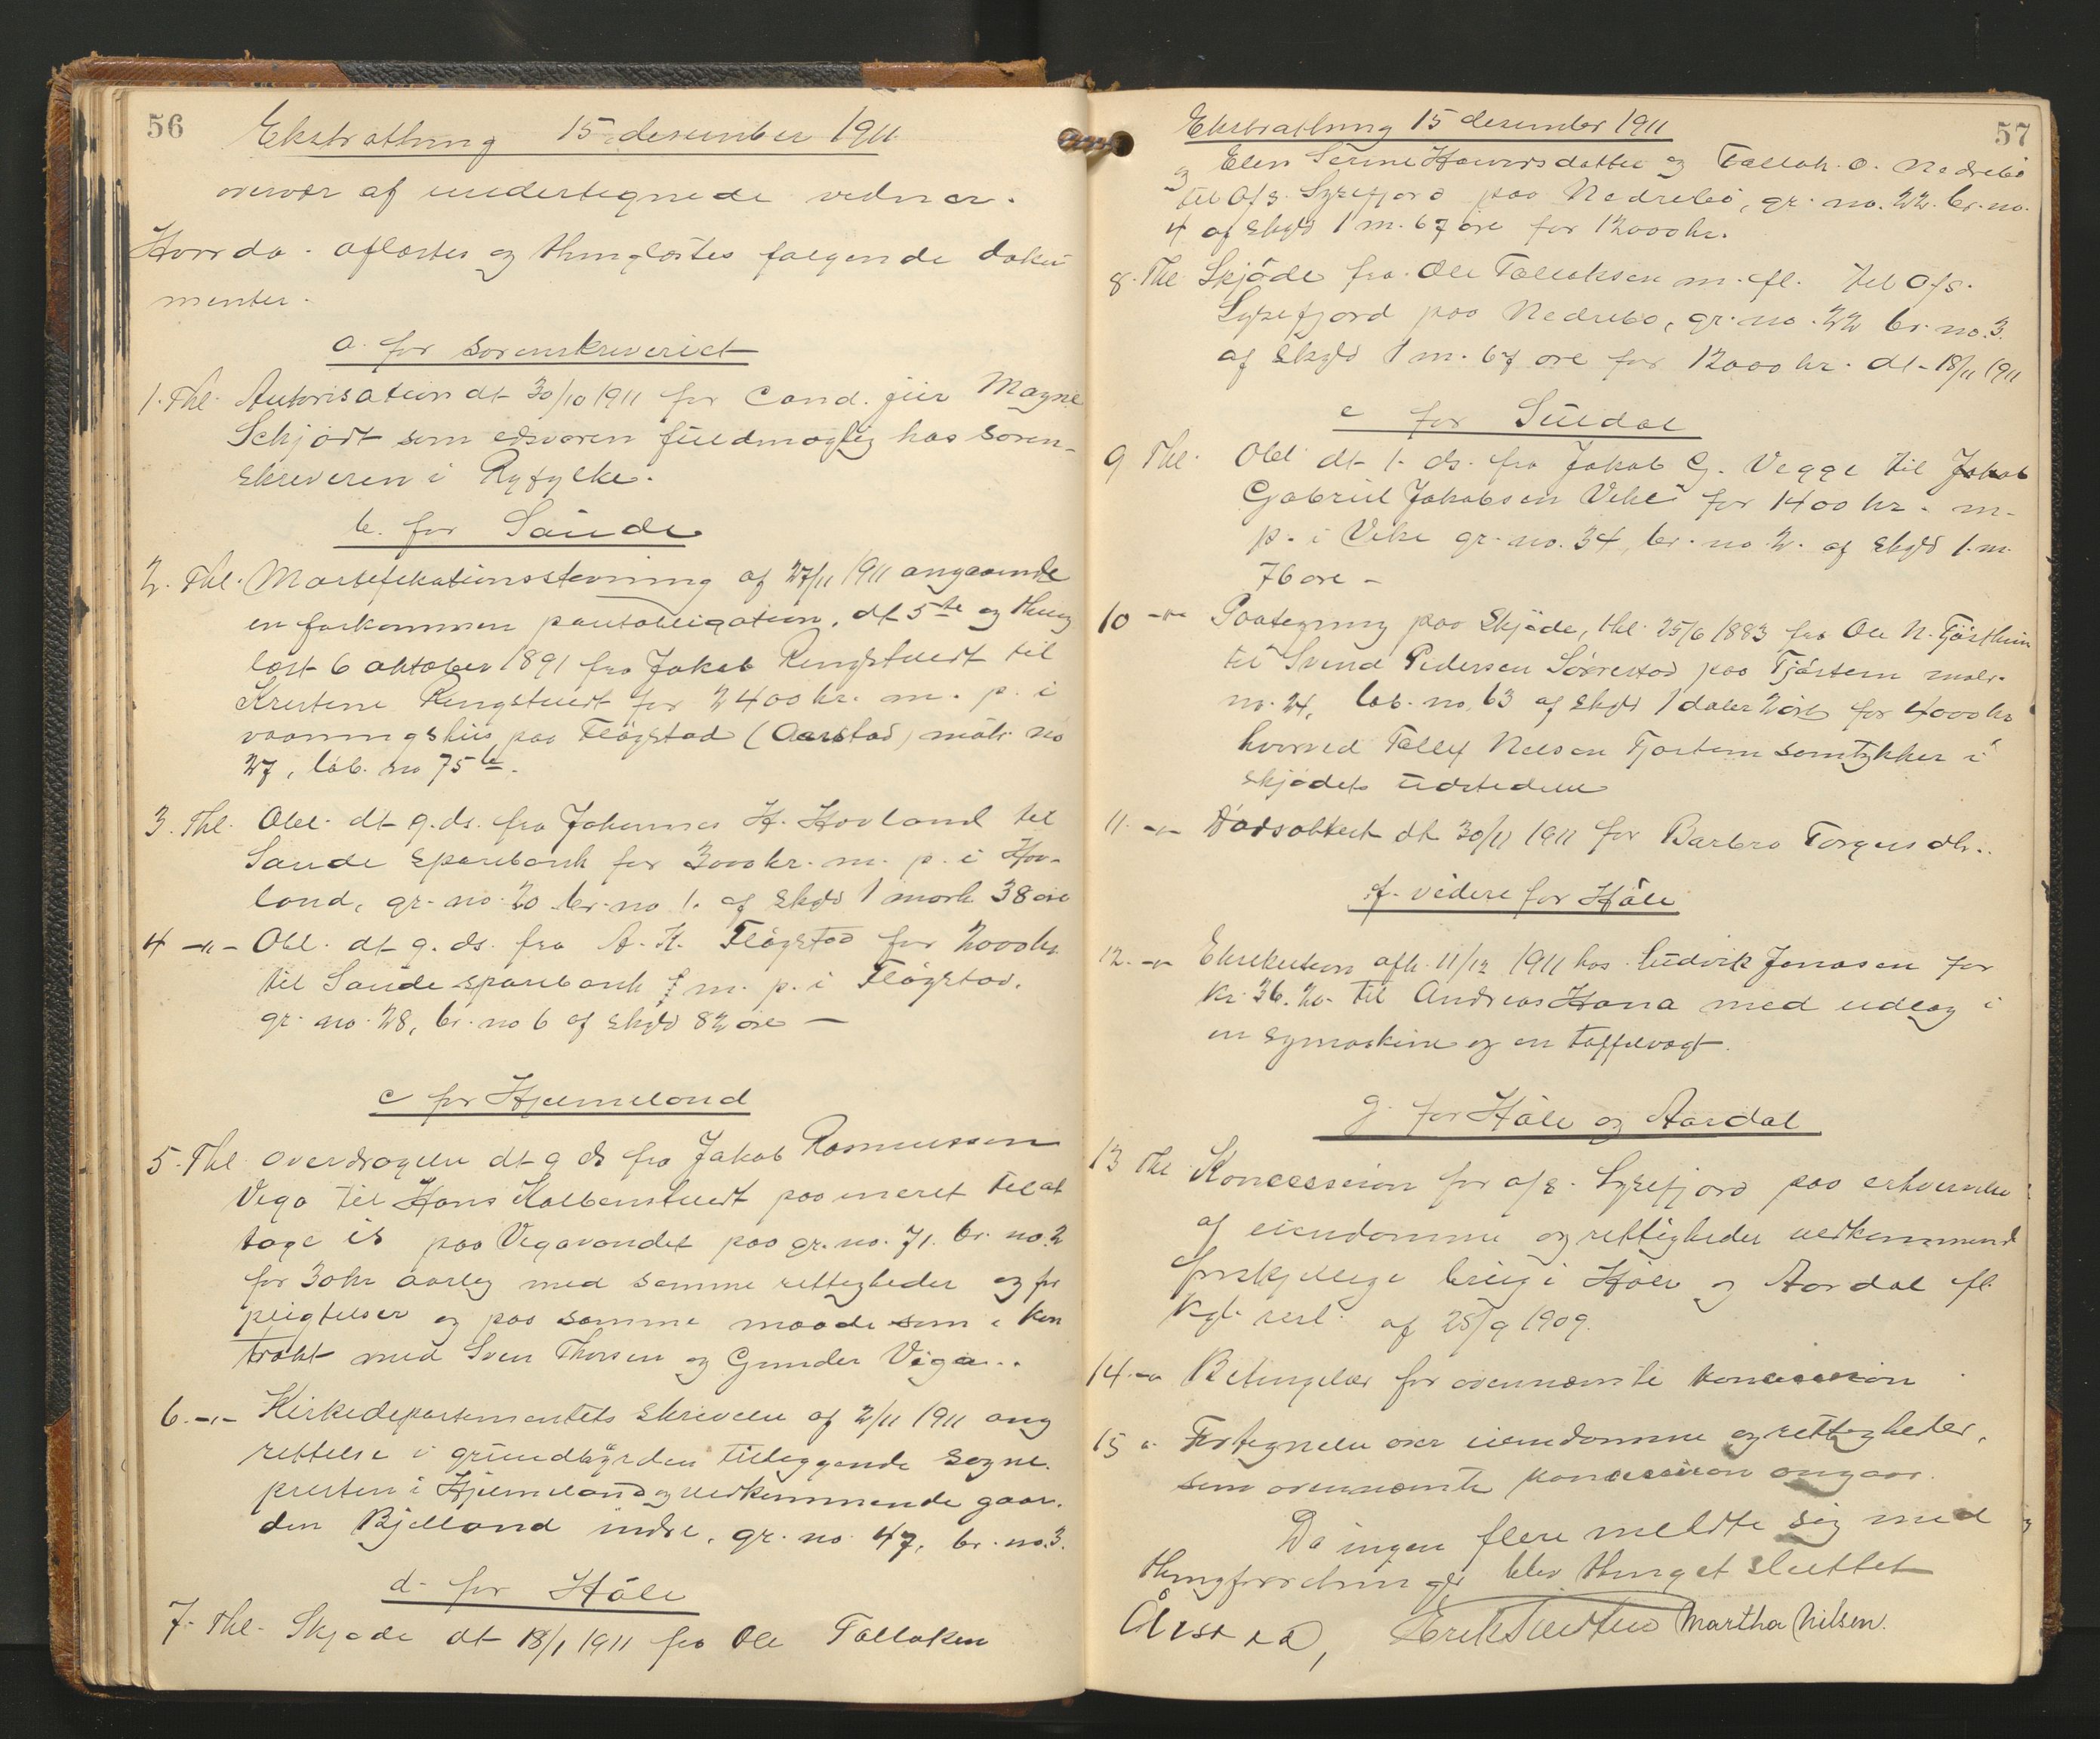 56
Ekstrathing 15 desember 1911
overvær af undertegnede vidner.
Hvorda aflæstes og thinglæstes følgende doku
menter.
a. for sorenskriveriet
1. Thl. Autorisation dt 30/10 1911 for Cand. jur Magne
Schjødt som edsvoren fuldmægtig hos soren-
skriveren i Ryfylke.
b. for Saude
2. Thl. Mortifikationsstevning af 27/11 1911 angaaende
en forkommen pantobligation, dt 5te og thing
læst 6 oktober 1891 fra Jakob Ringstveit til
Kristine Ringstveit for 2400 kr. m. p. i
vaaningshus paa Fløgstad (Aarstad) matr no
27, løb. no 75 b.
3. Thl. Obl. dt 9. ds. fra Johannes H. Hovland til
Saude sparebank for 3000 kr. m. p. i Hov-
land, gr. no. 20 br. no 1. af skyld 1 mark 38 øre
4 -"- Obl. dt 9. ds. fra A. K. Fløgstad for 2000 kr.
til Saude sparebank m. p. i Fløgstad.
gr. no. 28, br. no 6 af skyld 82 øre —
c for Hjelmeland
5. Thl. overdragelse dt 9 ds fra Jakob Rasmussen
Viga til Hans Kalbenstvedt paa eneret til at
tage is paa Vigavandet paa gr. no. 71. br. no. 2
for 30 kr aarlig med samme rettigheder og for
pligtelser og paa samme maade som i kon
trakt med Sven Thorsen og Gunder Viga..
6. -"- Kirkedepartementets skrivelse af 2/11 1911 ang
rettelse i grundbyrden tilliggende sogne-
presten i Hjelmeland vedkommende gaar-
den Bjelland indre, gr. no 47, br. no. 3.
d. for Høle
7. Thl. Skjøde dt 18/1 1911 fra Ole Tallaksen
57
Ekstrathing 15 desember 1911
og Elen Serine Haversdatter og Tallak O. Nedrebø
til A/S. Lysefjord paa Nedrebø, gr. no. 22. br. no.
4 af skyld 1 m. 67 øre for 12000 kr.
8. Thl. Skjøde fra Ole Tallaksen m. fl. til A/S.
Lysefjord paa Nedrebø, gr. no. 22 br. no. 3.
af skyld 1 m. 67 øre for 12000 kr. dt. 18/11 1911
e for Suldal
9 Thl. Obl. dt 1. ds. fra Jakob G. Vegge til Jakob
Gabriel Jakobsen Veke for 1400 kr. m-
p. i Veke gr. no. 34, br. no 2. af skyld 1. m.
76 øre —
10 -"- Paategning paa skjøde, thl. 25/6 1883 fra Ole N. Tjøstheim
til Svend Pedersen Sørrestad paa Tjøstem matr.
no. 24, løb. no. 63 af skyld 1 daler 2 ort for 4000 kr
hvorved Nelsen Tjøstem samtykker i
skjødets udstedelse
11. -"- Dødsattest dt 30/11 1911 for Barbro Torgersdtr..
f. videre for Høle
12. -"- Eksekution afh. 11/12 1911 hos Ludvik Jonasen for
kr. 36. 20 til Andreas Hana med udlæg i
en symaskine og en taffelvægt.
g. for Høle og Aardal
13 Thl Koncession for A/S. Lysefjord paa erhvervelse
af eiendomme og rettigheder vedkommende
forskjellige brug i Høle og Aardal fl.
kgl. resl. af 25/9 1909.
14. -"- Betingelser for ovennævnte koncession
15 " Fortegnelse over eiendomme og rettigheder,
som ovennævnte koncession angaar.
Da ingen flere meldte sig med
thingforretninger blev thinget sluttet
Martha Nilsen.